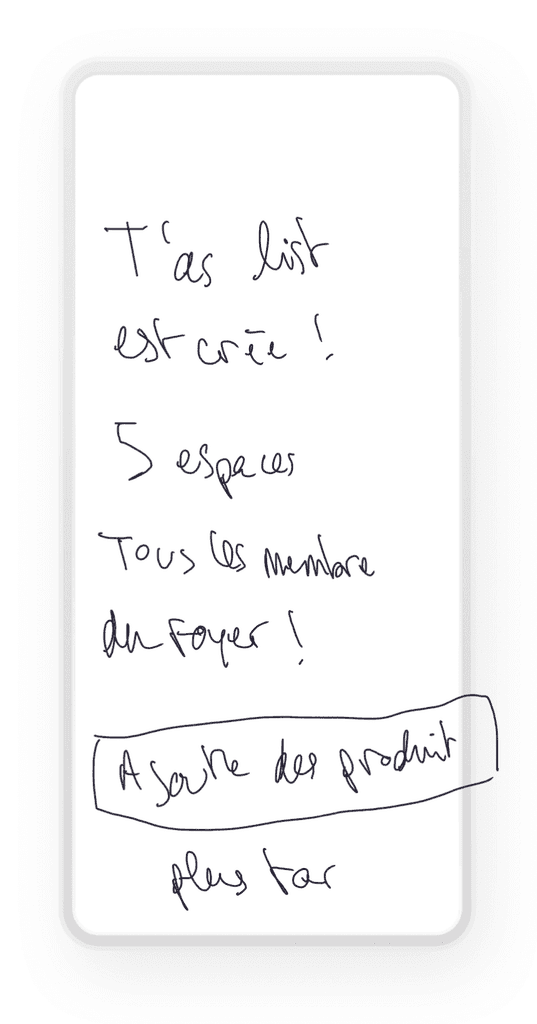 T'as list
est crée !
5 espaces
Tous les membre
du Foyer !
Ajoute des produit
plus tar